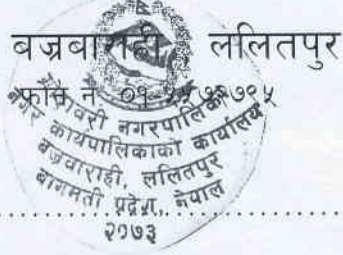 बज्रबाराही, ललितपुर
फोन नं
गोदावरी नगरपालिका
नगर कार्यपालिकाको कार्यालय
बज्रवाराही, ललितपुर
बागमती प्रदेश, नेपाल
२०७३